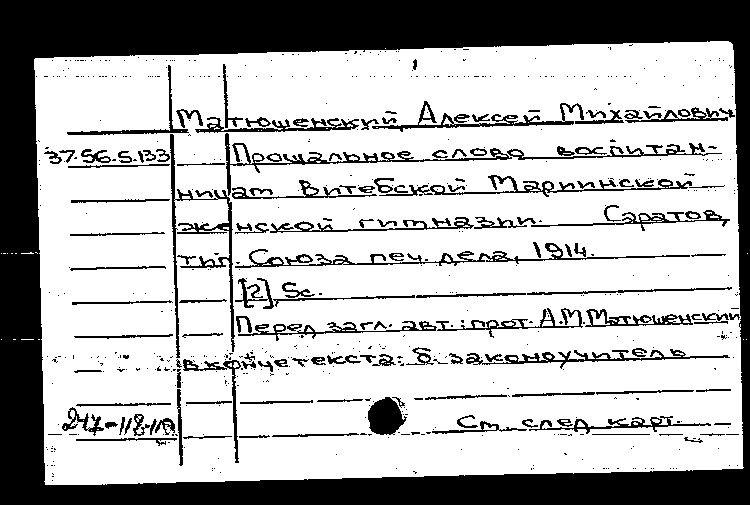 Матюшенский, Алексей Михайлович
37.56.5.133 Прощальное слово воспитан-
ницам Витебской Мариинской
женской гимназии. Саратов,
тип. Союза печ. дела, 1914.
[2], 5с.
Перед загл. авт.: прот. А.М.Матюшенский
в конце текста: б. законоучитель
См. след. карт.